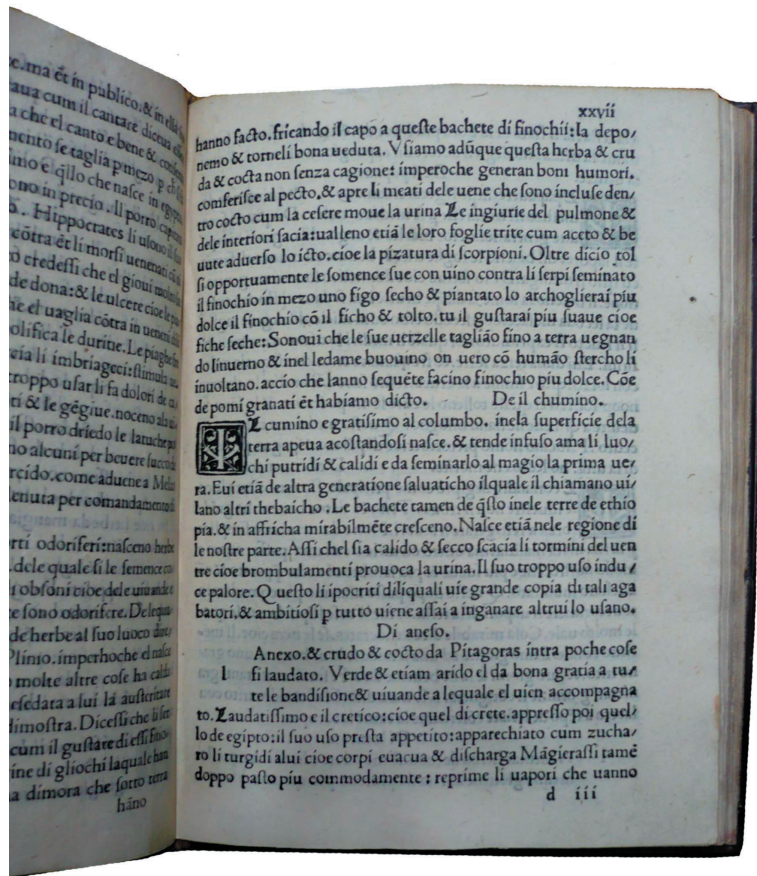 te.ma ēt in publico.& in ella
aua cum il cantare dicena
a che el canto e bene &
mento se taglia p mezo p
imo e qllo che nasce in egypto
ono in precio. Il porro
o. Hippocrates li usono il
cōtra ēt li morsi uenenati
o credessi che el gioui
de dona:& le ulcere cioe le
el uaglia cōtra in ueneni
olifica le durine. Le piaghe
cia li imbriageci:stimula
troppo usar li fa dolori de
ti & le gēgiue.noceno
il porro driedo le latuche
no alcuni per beuere
rcido.come aduene a
tenuta per comandamento
rti odoriferi:nasceno herbe
.dele quale si le semence
i obsoni cioe dele uiuande
e sono odorifere. De
de herbe al suo luoco
Plinio.imperhoche el nasce
molte altre cose ha
efedata a lui la austeritate
dimostra. Dicessi che li
cum il gustare di essi
ine di gliochi laquale
a dimora che sotto terra
hāno
xxvii
hanno facto.fricando il capo a queste bachete di finochii:la depo/
nemo & torneli bona ueduta. Vsiamo adūque questa herba & cru
da & cocta non senza cagione: imperoche generan boni humori.
comferisce al pecto.& apre li meati dele uene che sono incluse den/
tro cocto cum la cesere moue la urina Le ingiurie del pulmone &
dele interiori sacia:ualleno etiā le loro foglie trite cum aceto & be
uute aduerso lo icto.cioe la pizatura di scorpioni. Oltre dicio tol
si opportuamente le somence sue con uino contra li serpi seminato
il finochio in mezo uno figo secho & piantato lo archoglierai piu
dolce il finochio cō il ficho & tolto.tu il gustarai piu suaue cioe
fiche seche: Sonoui che le sue uerzelle tagliāo fino a terra uegnan
do linuerno & inel ledame buouino on uero cō humāo stercho li
inuoltano.accio che lanno sequēte facino finochio piu dolce. Cōe
de pomi granati ēt habiamo dicto. De il chumino.
IL cumino e gratisimo al columbo. inela superficie dela
terra apeua acostandosi nasce.& tende infuso ama li luo/
chi putridi & calidi e da seminarlo al magio la prima ue/
ra. Eui etiā de altra generatione saluaticho ilquale il chiamano ui/
lano altri thebaicho. Le bachete tamen de qsto inele terre de ethio
pia.& in affricha mirabilmēte cresceno. Nasce etiā nele regione di
le nostre parte. Assi chel sia calido & secco scācia li tormini del uen
tre cioe brombulamenti prouoca la urina. Il suo troppo uso indu /
ce palore. Questo li ipocriti diliquali uie grande copia di tali aga
batori.& ambitiosi p tutto uiene assai a inganare altrui lo usano.
Di aneso.
l Anexo.& crudo & cocto da Pitagoras intra poche cose
si laudato. Verde & etiam arido el da bona gratia a tu/
te le bandisione & uiuande a lequale el uien accompagna
to. Laudatissimo e il cretico:cioe quel di crete.appresso poi quel/
lo de egipto:il suo uso presta appetito:apparechiato cum zucha/
ro li turgidi alui cioe corpi euacua & discharga Māgierassi tamē
doppo pasto piu commodamente : reprime li uapori che uanno
d iii